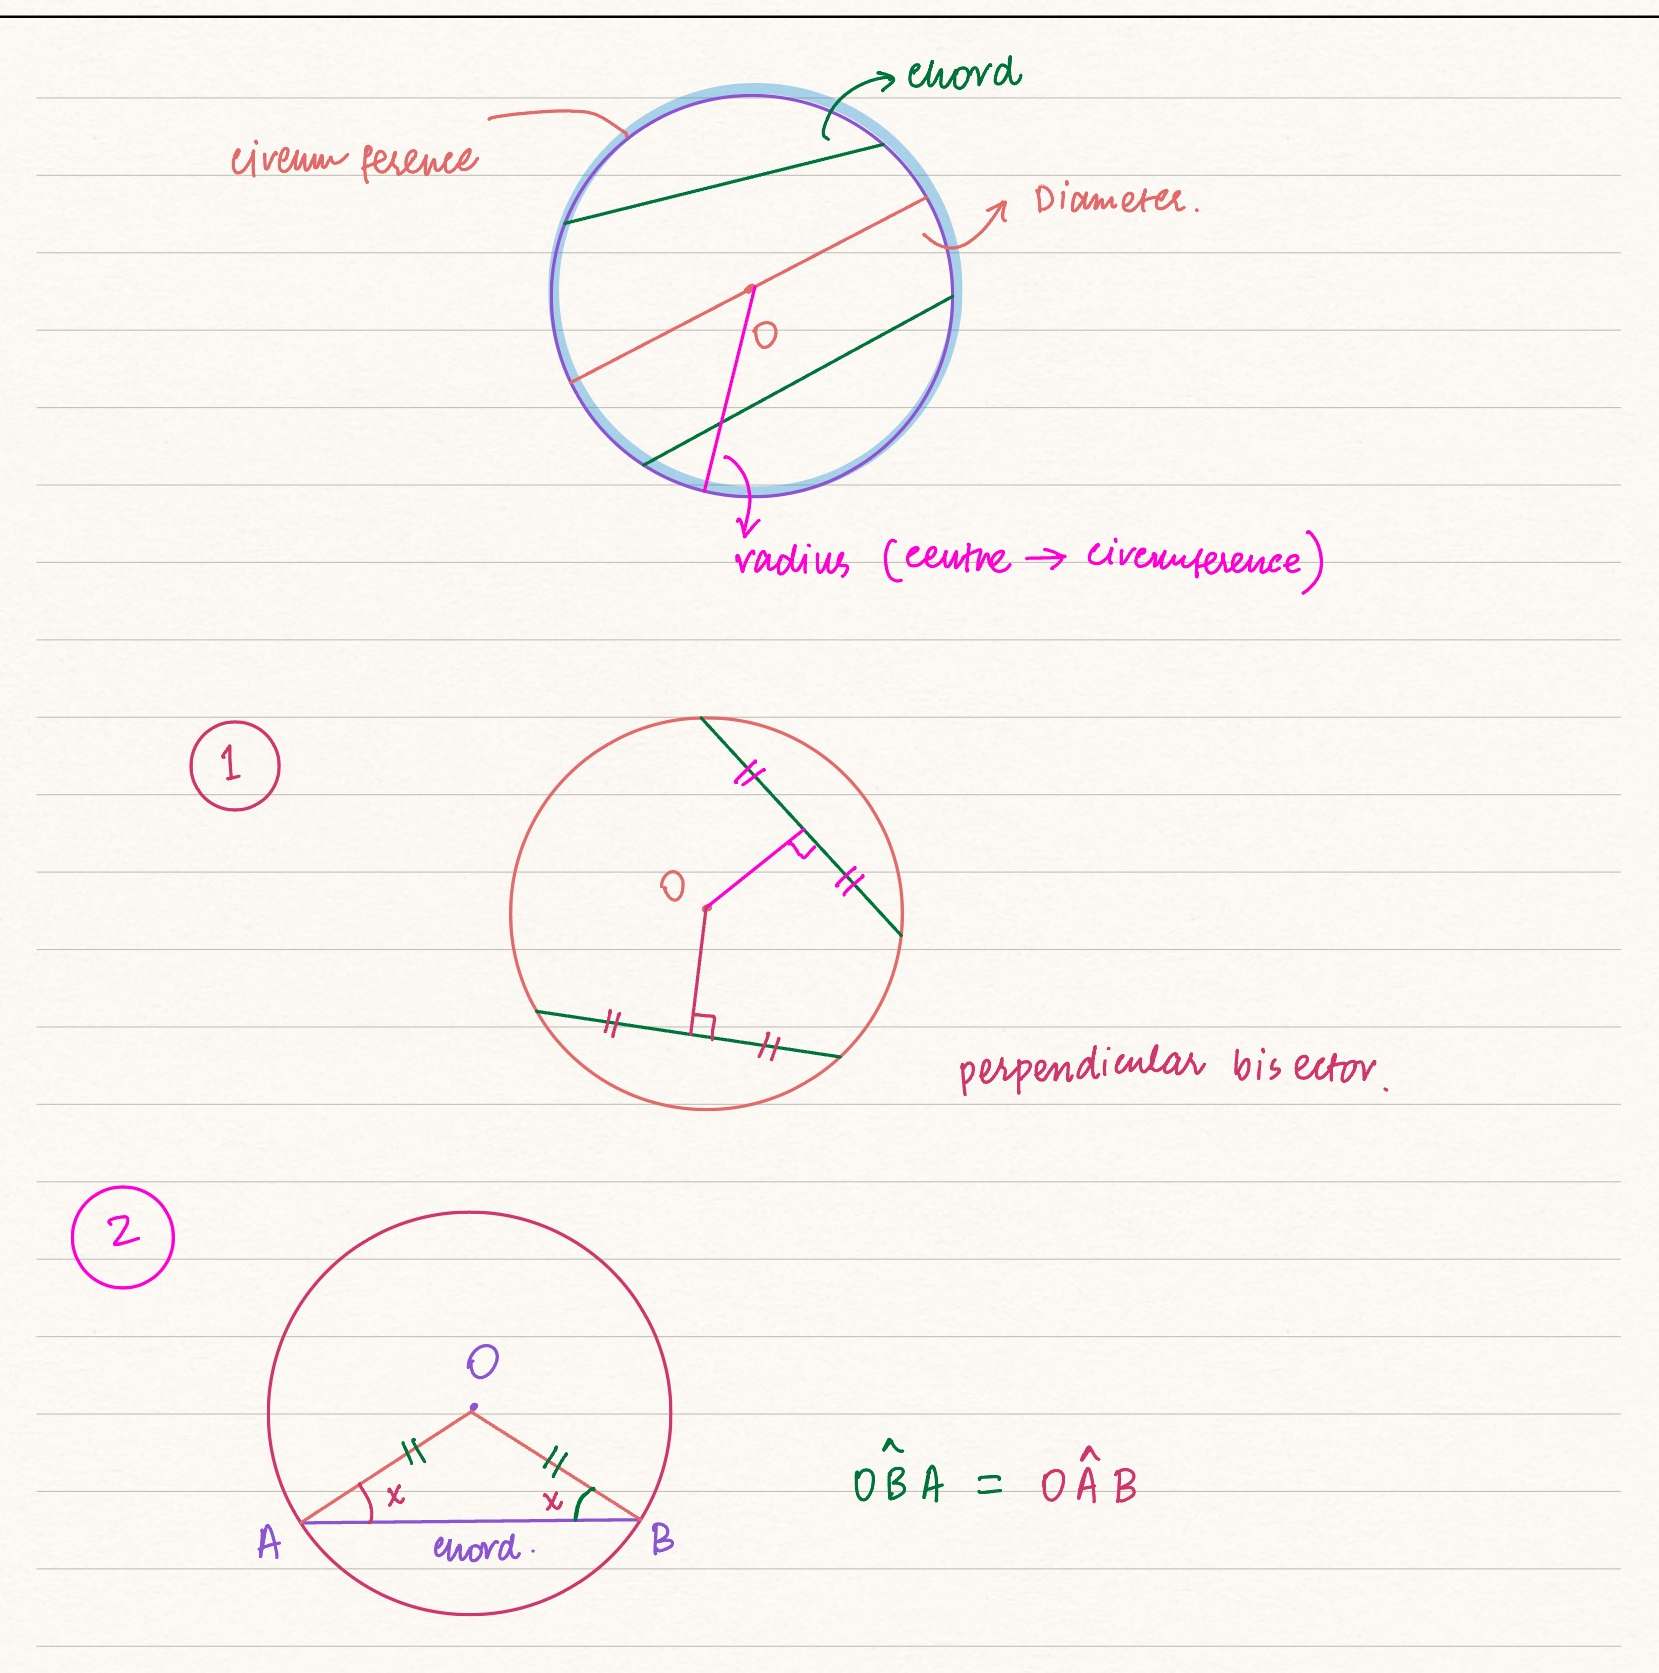 chord
circumference
Diameter.
O
radius (centre → circumference)
1
O
perpendicular bisector.
2
O
x x
OB̂A = OÂB
A B
chord.